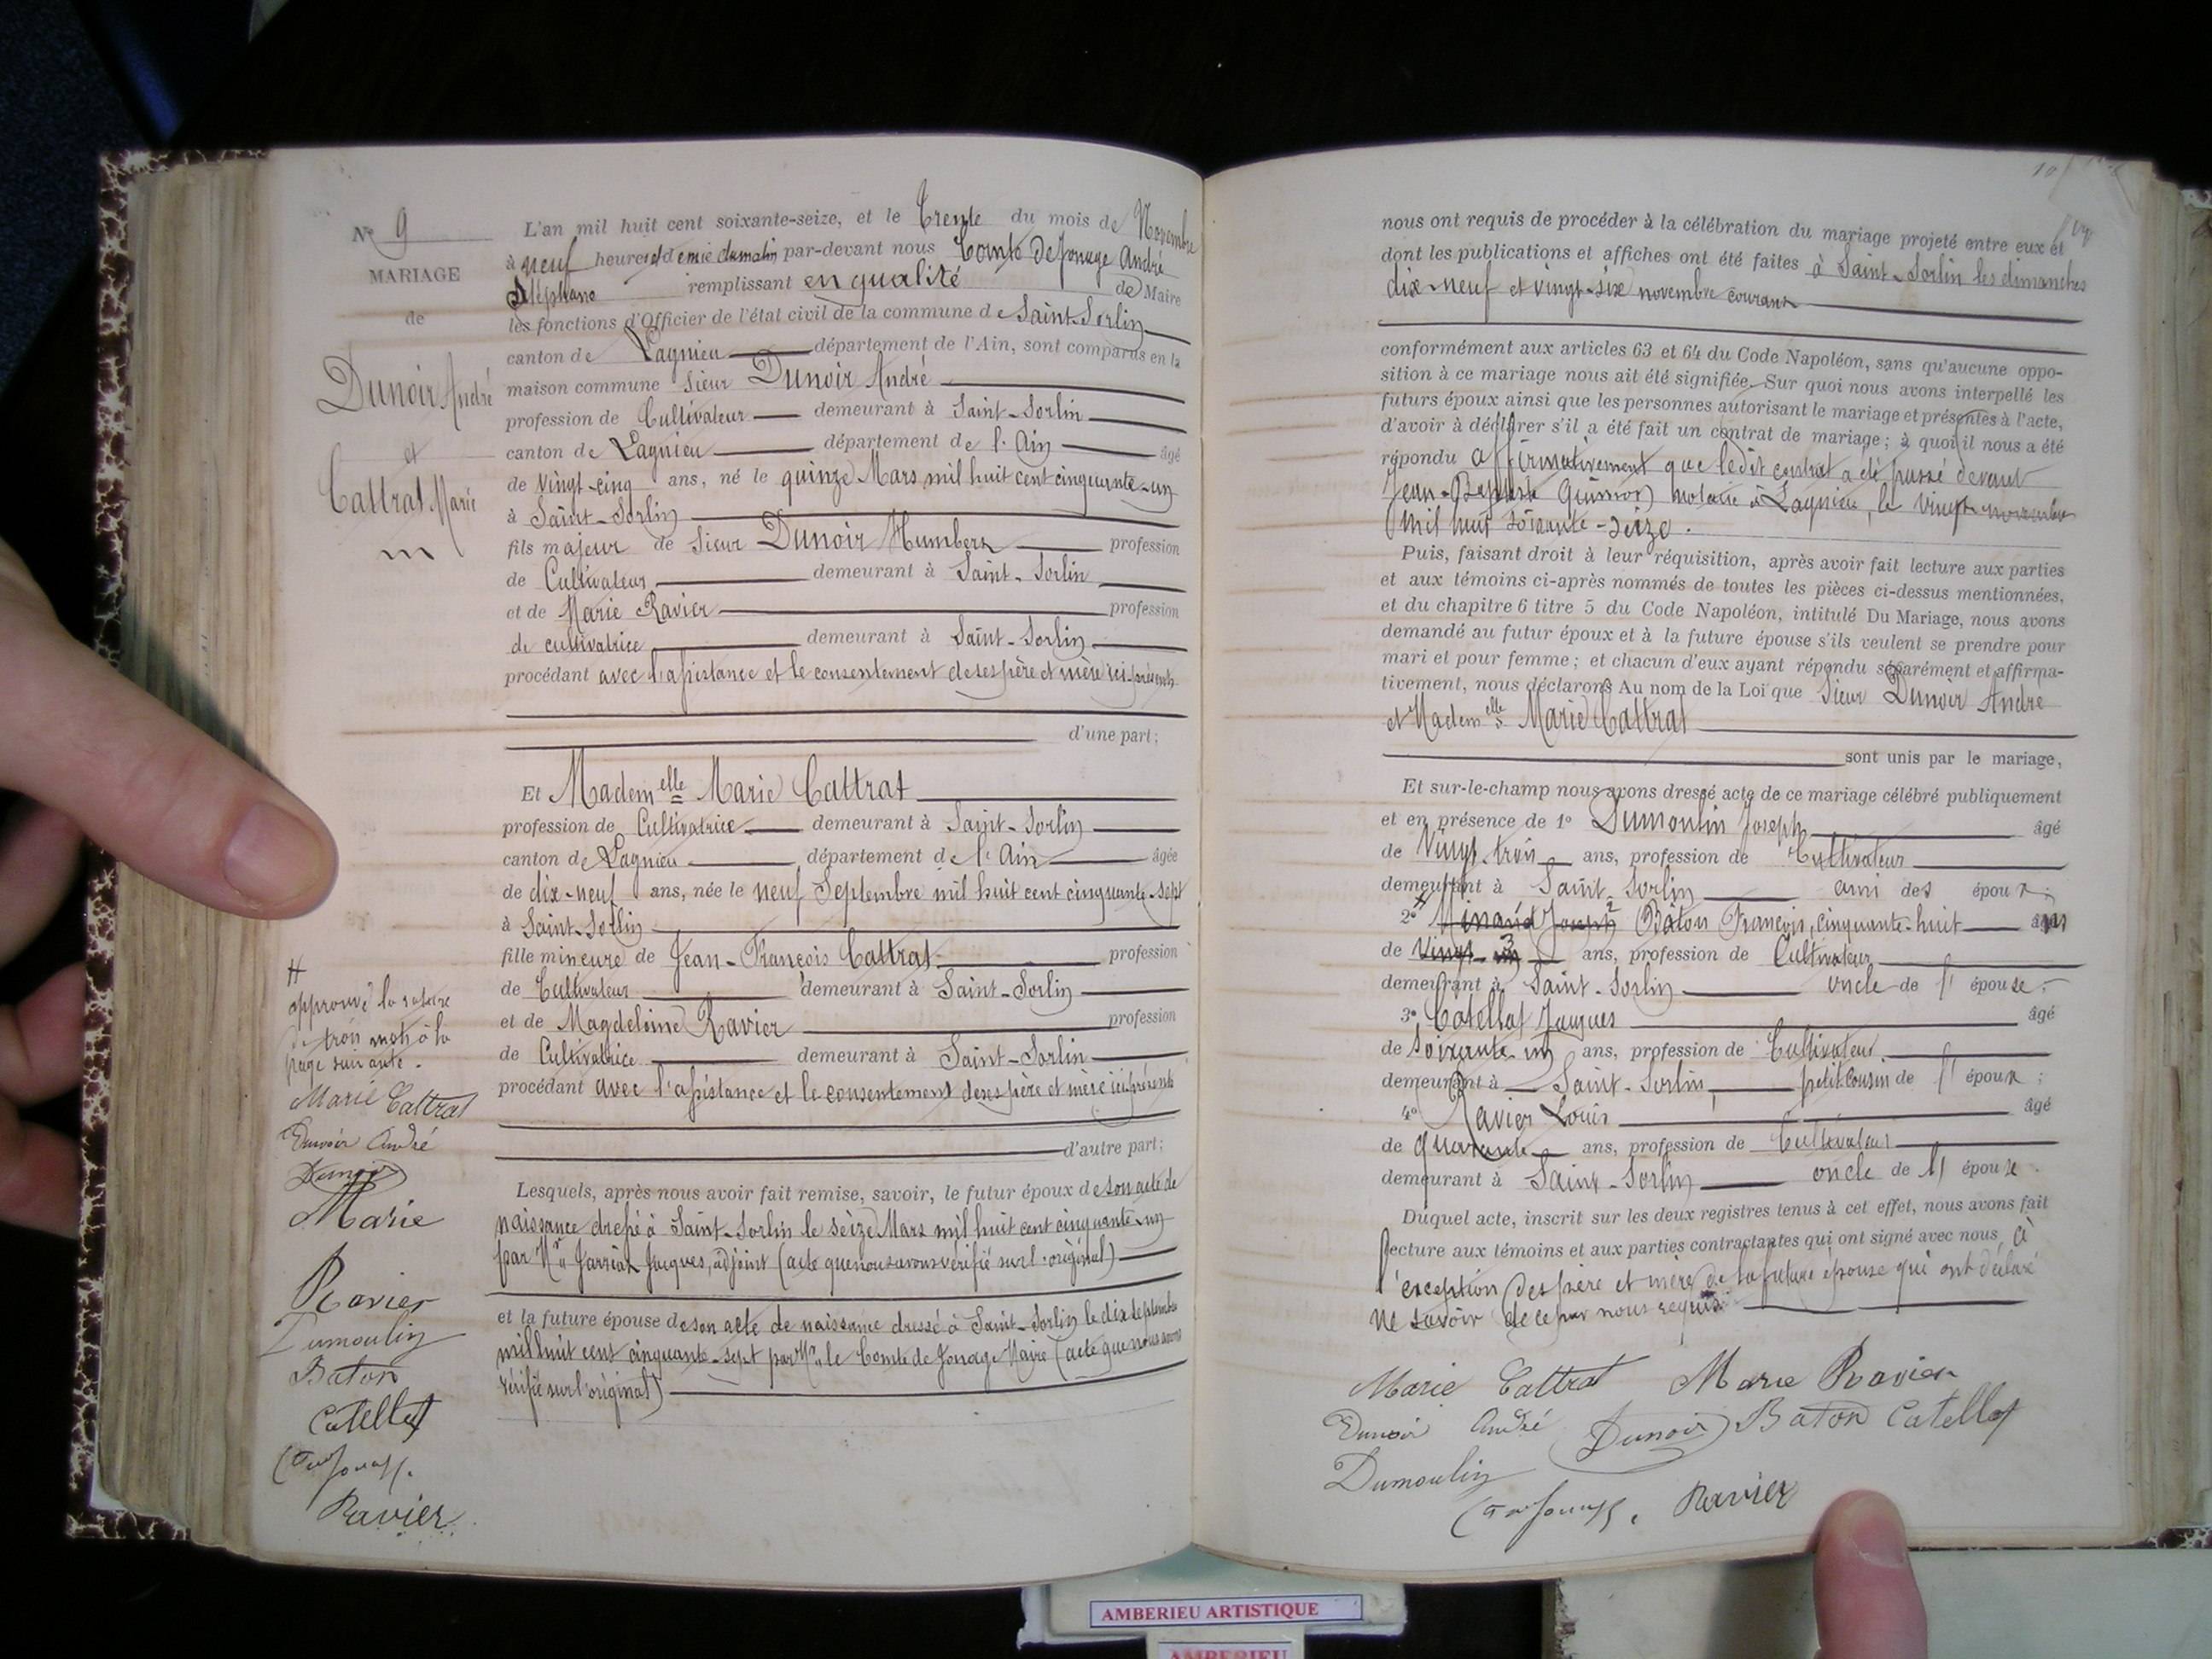 Nº 9
MARIAGE
de
Dunoir André
et
Cattrat Marie
L'an mil huit cent soixante-seize, et le Trente du mois de Novembre
à neuf heures et demie du matin par-devant nous Comte de Jonage André
Stéphane remplissant en qualité de Maire
les fonctions d'Officier de l'état civil de la commune de Saint-Sorlin
canton de Lagnieu département de l'Ain, sont comparus en la
maison commune Sieur Dunoir André
profession de Cultivateur demeurant à Saint-Sorlin
canton de Lagnieu département de l'Ain âgé
de vingt-cinq ans, né le quinze Mars mil huit cent cinquante-un
à Saint-Sorlin
fils majeur de Sieur Dunoir Humbert profession
de Cultivateur demeurant à Saint-Sorlin
et de Marie Ravier profession
de cultivatrice demeurant à Saint-Sorlin
procédant avec l'assistance et le consentement de ses père et mère ici présents
d'une part;
Et Mademelle Marie Cattrat
profession de Cultivatrice demeurant à Saint-Sorlin
canton de Lagnieu département de l'Ain âgée
de dix-neuf ans, née le neuf Septembre mil huit cent cinquante-sept
à Saint-Sorlin
fille mineure de Jean-François Cattrat profession
de Cultivateur demeurant à Saint-Sorlin
et de Magdeleine Ravier profession
de Cultivatrice demeurant à Saint-Sorlin
procédant avec l'assistance et le consentement de ses père et mère ici présents
d'autre part;
Lesquels, après nous avoir fait remise, savoir, le futur époux de son acte de
naissance dressé à Saint-Sorlin le seize Mars mil huit cent cinquante-un
par Mr Jarriat Jacques, adjoint (acte que nous avons vérifié sur l'original)
et la future épouse de son acte de naissance dressé à Saint-Sorlin le dix septembre
mil huit cent cinquante-sept par Mr le Comte de Jonage Maire (acte que nous avons
vérifié sur l'original)
approuvé la rature
de trois mots à la
page suivante.
Marie Cattrat
Dunoir André
Dunoir
Marie
Ravier
Dumoulin
Baton
Catellat
Ravier
nous ont requis de procéder à la célébration du mariage projeté entre eux et
dont les publications et affiches ont été faites à Saint-Sorlin les dimanches
dix-neuf et vingt-six novembre courant
conformément aux articles 63 et 64 du Code Napoléon, sans qu'aucune oppo-
sition à ce mariage nous ait été signifiée. Sur quoi nous avons interpellé les
futurs époux ainsi que les personnes autorisant le mariage et présentes à l'acte,
d'avoir à déclarer s'il a été fait un contrat de mariage; à quoi il nous a été
répondu affirmativement que ledit contrat a été passé devant
Jean-Baptiste notaire à Lagnieu, le vingt novembre
mil huit soixante-seize.
Puis, faisant droit à leur réquisition, après avoir fait lecture aux parties
et aux témoins ci-après nommés de toutes les pièces ci-dessus mentionnées,
et du chapitre 6 titre 5 du Code Napoléon, intitulé Du Mariage, nous avons
demandé au futur époux et à la future épouse s'ils veulent se prendre pour
mari et pour femme; et chacun d'eux ayant répondu séparément et affirma-
tivement, nous déclarons Au nom de la Loi que Sieur Dunoir André
et Mademelle Marie Cattrat
sont unis par le mariage,
Et sur-le-champ nous avons dressé acte de ce mariage célébré publiquement
et en présence de 1º Dumoulin Joseph âgé
de vingt-trois ans, profession de Cultivateur
demeurant à Saint-Sorlin ami des époux;
2º Minand Joseph Bâton François, cinquante-huit ans
de vingt ans, profession de Cultivateur
demeurant à Saint-Sorlin oncle de l'épouse.
3º Catellat Jacques âgé
de soixante-un ans, profession de Cultivateur
demeurant à Saint-Sorlin petit cousin de l'époux;
4º Ravier Louis âgé
de quarante ans, profession de Cultivateur
demeurant à Saint-Sorlin oncle de l'époux.
Duquel acte, inscrit sur les deux registres tenus à cet effet, nous avons fait
lecture aux témoins et aux parties contractantes qui ont signé avec nous, à
l'exception des père et mère de la future épouse qui ont déclaré
ne savoir de ce par nous requis.
Marie Cattrat Marie Ravier
Dunoir André Dunoir Baton Catellat
Dumoulin
Ravier
AMBERIEU ARTISTIQUE
AMBERIEU